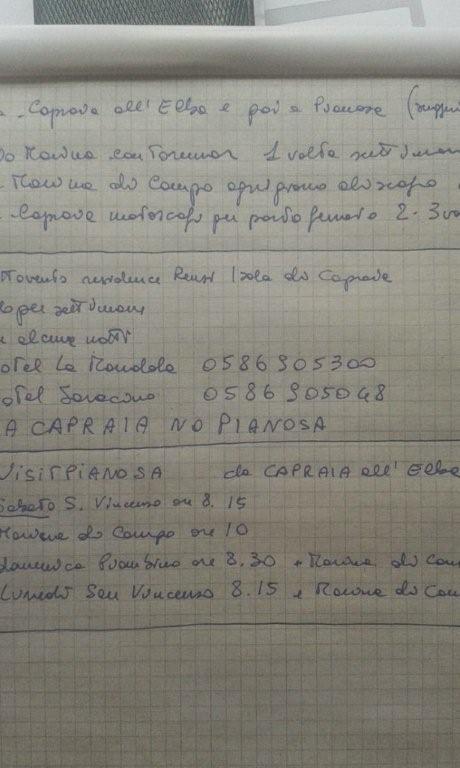 Capraia all'Elba e poi a Pianosa
Marina con Toremar 1 volta settiman
Marina di Campo ogni giorno aliscafo
Capraia motoscafo per porto ferraio 2-3 vo
residence Isola di Capraia
per settimana
alcune notti
otel La Mandola 0586 905300
otel Saracino 0586 905048
A CAPRAIA NO PIANOSA
VISITPIANOSA da CAPRAIA all'Elba
Sabato S. Vincenzo ore 8.15
Marina di Campo ore 10
domenica Piombino ore 8.30 + Marina di Cam
Lunedì San Vincenzo 8.15 e Marina di Cam